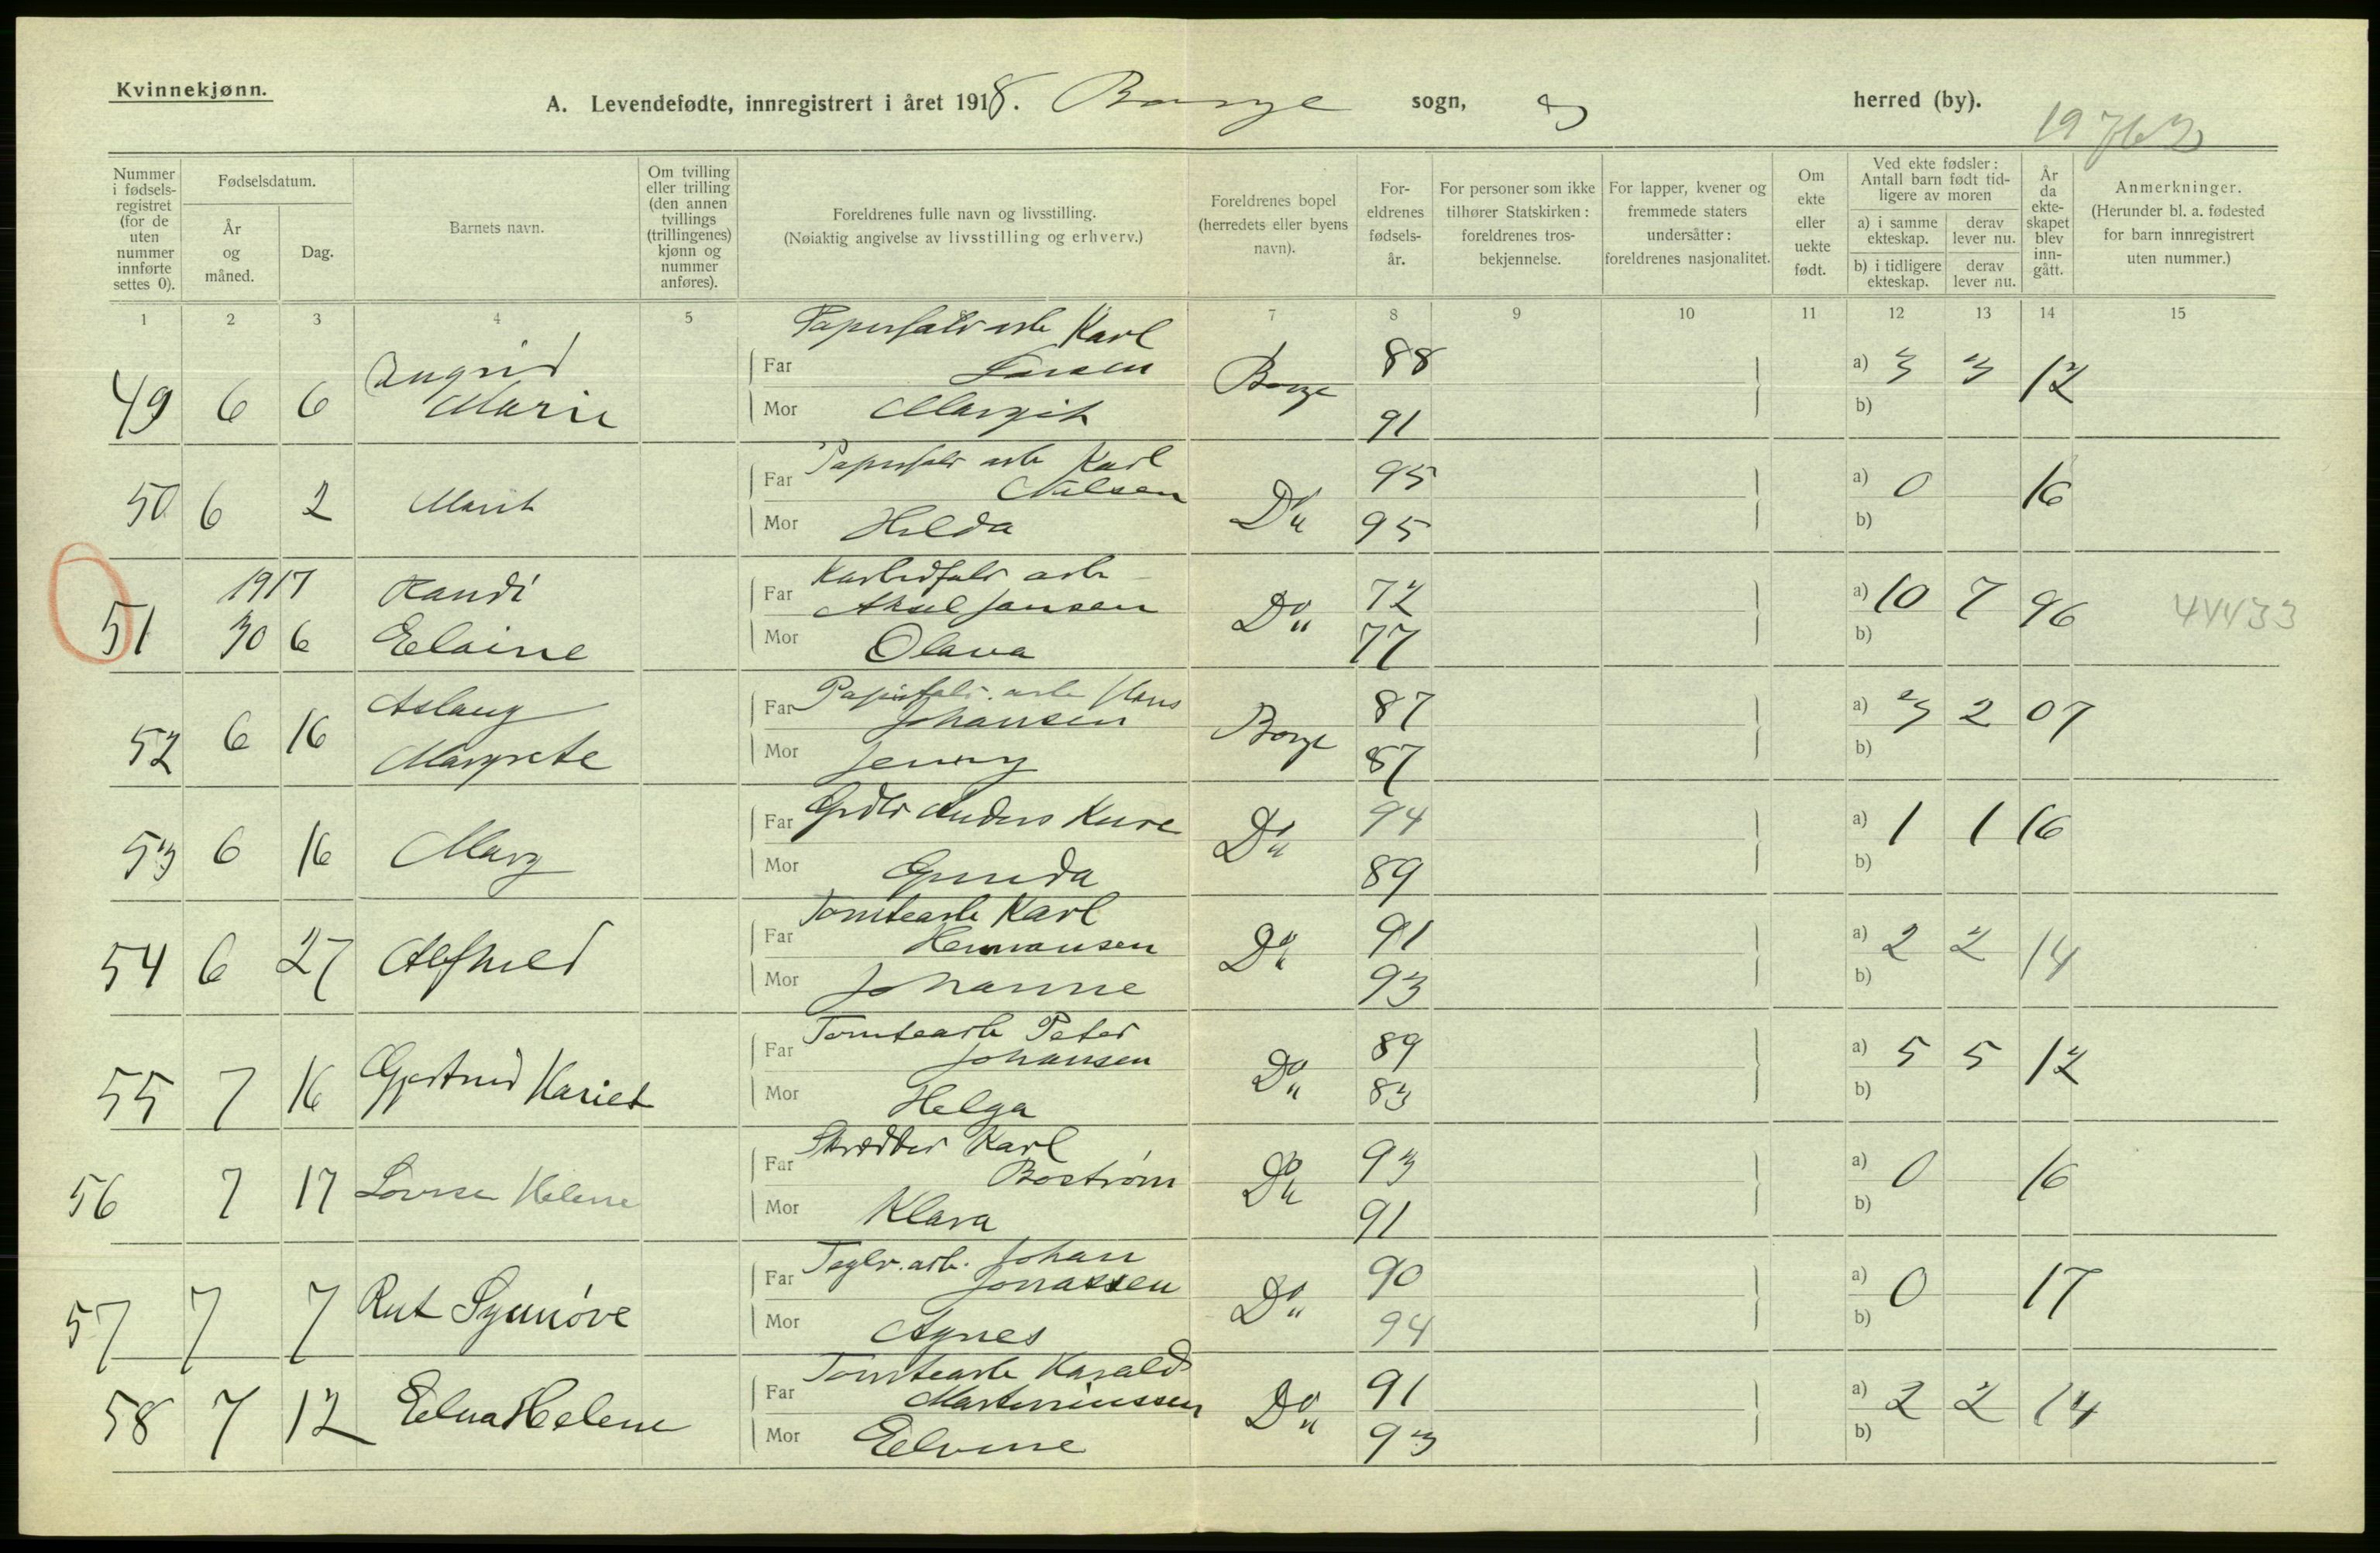 Kvinnekjønn.
A. Levendefødte, innregistrert i året 1918. Borge sogn, herred (by).
19 763
Nummer i fødsels-registret (for de uten nummer innførte settes 0).
Fødselsdatum.
År og måned.
Dag.
Barnets navn.
Om tvilling eller trilling (den annen tvillings (trillingenes) kjønn og nummer anføres).
Foreldrenes fulle navn og livsstilling.
(Nøiaktig angivelse av livsstilling og erhverv.)
Foreldrenes bopel (herredets eller byens navn).
For-eldrenes fødsels-år.
For personer som ikke tilhører Statskirken: foreldrenes tros-bekjennelse.
For lapper, kvener og fremmede staters undersåtter: foreldrenes nasjonalitet.
Om ekte eller uekte født.
Ved ekte fødsler: Antall barn født tid-ligere av moren
a) i samme ekteskap.
derav lever nu.
b) i tidligere ekteskap.
derav lever nu.
År da ekte-skapet blev inn-gått.
Anmerkninger.
(Herunder bl. a. fødested for barn innregistrert uten nummer.)
1 2 3 4 5 7 8 9 10 11 12 13 14 15
Papirfabr arb Karl
49 6 6 Ingrid Far Larsen Borge 88 a) 3 3 12
Marie Mor Margit 91 b)
Papirfabr arb Karl
50 6 2 Marit Far Nilsen Do 95 a) 0 16
Mor Hilda 95 b)
1917 Randi Karbidfabr arb
51 30 6 Elaine Far Aksel Jansen Do 72 a) 10 7 96 44433
Mor Olava 77 b)
Aslaug Far Papirfabr. arb Hans
52 6 16 Margrete Johansen Borge 87 a) 3 2 07
Mor Jenny 87 b)
53 6 16 Mary Far Grdbr Anders Kure Do 94 a) 1 1 16
Mor Gunda 89 b)
Tomtearb Karl
54 6 27 Alfhild Far Hermansen Do 91 a) 2 2 14
Mor Johanne 93 b)
Tomtearb Peter
55 7 16 Gjertrud Hariet Far Johansen Do 89 a) 5 5 12
Mor Helga 83 b)
Skrædder Karl
56 7 17 Lovise Helene Far Bostrøm Do 93 a) 0 16
Mor Klara 91 b)
Teglv. arb. Johan
57 7 7 Rut Synnøve Far Jonassen Do 90 a) 0 17
Mor Agnes 94 b)
Tomtearb Harald
58 7 12 Edna Helene Far Martiniussen Do 91 a) 2 2 14
Mor Elvine 93 b)